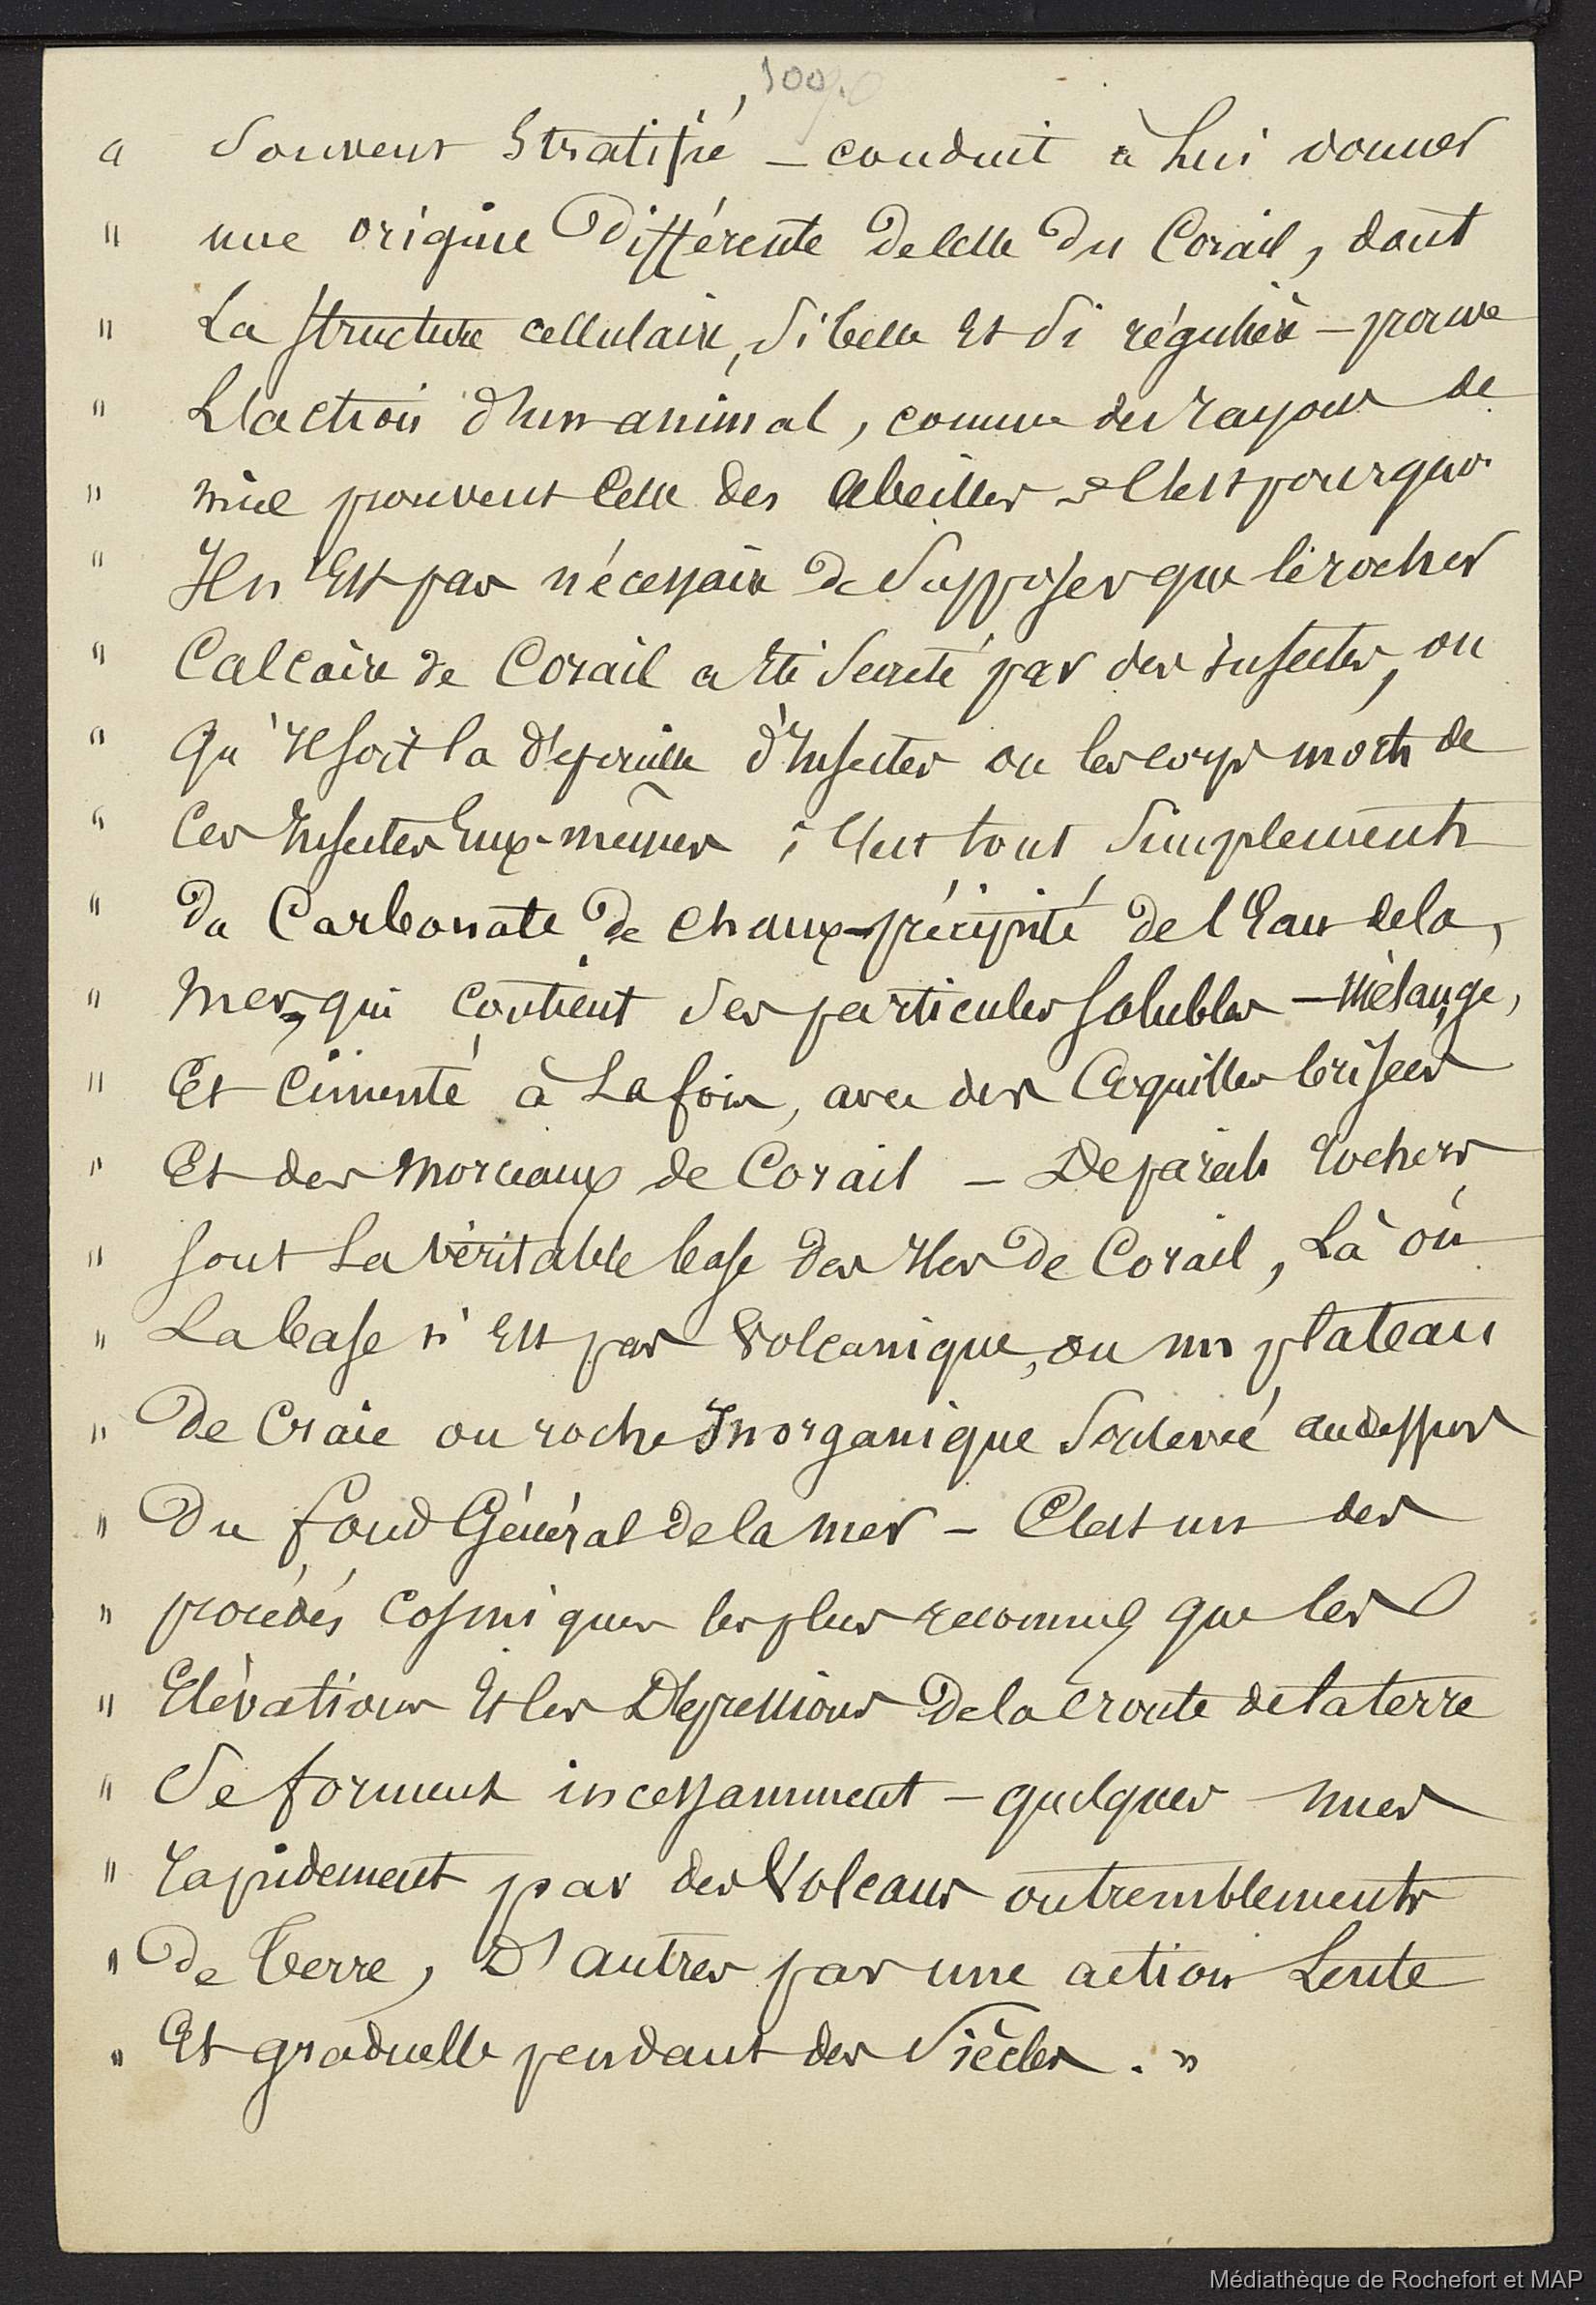 100.
" Souvent Stratifié – conduit à Lui donner
" une origine Différente de celle du Corail, dont
" La structure cellulaire, si belle et si régulière – prouve
" L'action d'un animal, comme des rayons de
" miel prouvent celle des Abeilles – C'est pourquoi
" Il n'est pas nécessaire de Supposer que le rocher
" Calcaire de Corail a été Secrété par des insectes, ou
" Qu'il soit la dépouille d'Insectes ou les corps morts de
" Ces Insectes Eux-mêmes ; C'est tout Simplement
" Du Carbonate de chaux – précipité de l'Eau de la
" Mer, qui contient des particules solubles – Mélangé,
" Et Cimenté à La fois, avec des Coquilles brisées
" Et des Morceaux de Corail – De pareils rochers
" sont La véritable base des Iles de Corail, Là où
" La base n'est pas Volcanique, ou un plateau
" De Craie ou roche Inorganique Soulevée au dessus
" Du fond Général de la mer – C'est un des
" procédés Cosmiques les plus reconnus que les
" Elévations et les Dépressions de la croute de la terre
" Se forment incessamment – quelques unes
" rapidement par des Volcans ou tremblements
" de Terre, D'autres par une action Lente
" Et graduelle pendant des Siècles. "
Médiathèque de Rochefort et MAP